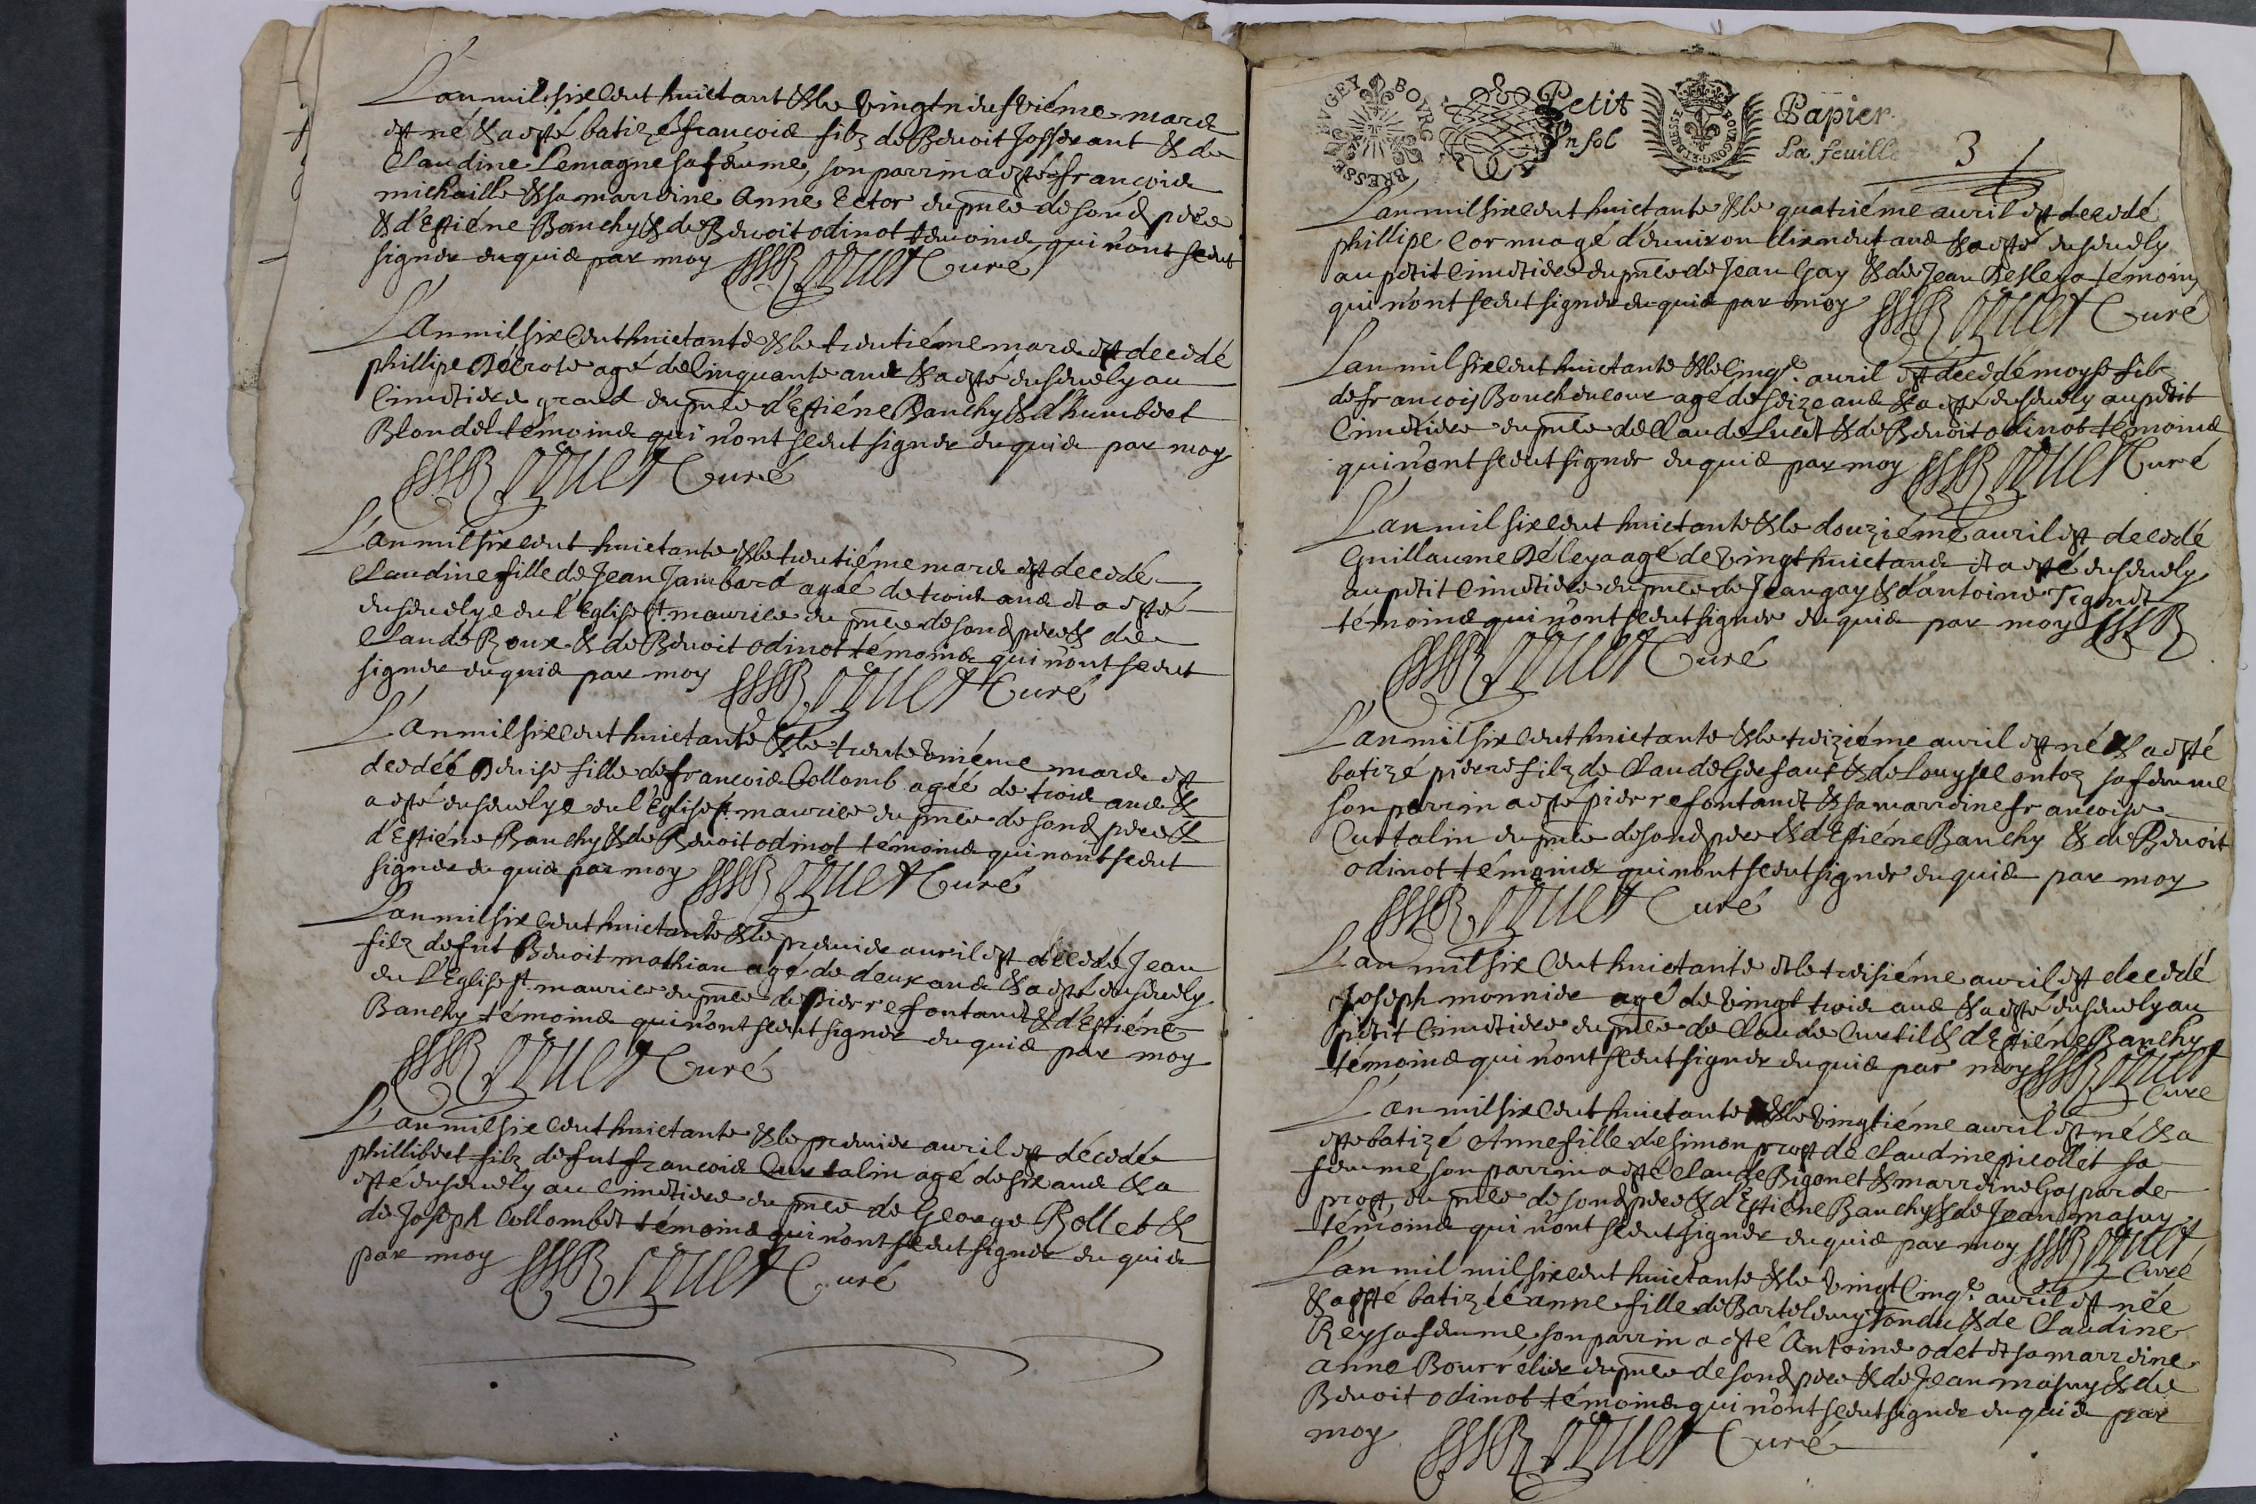 L'an mil six cent huictant & le vingtneufviéme mars
est né & a esté batizé françois filz de Benoit Josserant & de
Claudine Lemagne sa femme, son parrin a esté françois
michaille & sa marrine Anne Ector en pñce de sond pere
& d'Estiéne Banchy & de Benoit odinot témoins qui n'ont sceut
signer enquis par moy Curé
L'An mil six Cent huictante & le trentiéme mars est decedé
phillipe Decrote agé de Cinquante ans & a esté ensevely au
Cimetiere grand en pñce d'Estiéne Banchy & d'humbert
Blondel témoins qui n'ont sceut signer enquis par moy
Curé
L'an mil six cent huictante & le trentiéme mars est decedé
Claudine fille de Jean Jambard agée de trois ans et a esté
ensevelye en l'Eglise St. maurice en pñce de sond pere & de
Claude Roux & de Benoit odinot témoins qui n'ont sceut
signer enquis par moy Curé
L'an mil six cent huictante & le trente uniéme mars est
decedée Denise fille de françois Collomb agée de trois ans &
a esté ensevelye en l'Eglise St. maurice en pñce de sond pere &
d'Estiéne Banchy & de Benoit odinot témoins qui n'ont sceut
signer enquis par moy Curé
L'an mil six cent huictante & le premier avril est decedé Jean
filz de fut Benoit mathian agé de deux ans & a esté ensevely
en l'Eglise St. maurice en pñce de pierre fontanet & d'Estiéne
Banchy témoins qui n'ont sceut signer enquis par moy
Curé
L'an mil six cent huictante & le premier avril est décedé
phillibert filz de fut françois Curtalin agé de six ans & a
esté ensevely au Cimetiere en pñce de George Rollet &
de Joseph Collombet témoins qui n'ont sceut signer enquis
par moy Curé
BRESSE BVGEY BOVRG
Petit
Papier
Un sol
La feuille
3
L'an mil six cent huictante & le quatriéme avril est decedé
phillipe Cornu agé d'environ dix neuf ans & a esté ensevely
au petit Cimetiere en pñce de Jean Gay & de Jean Deleya témoins
qui n'ont sceut signer enquis par moy Curé
L'an mil six cent huictante & le Cinqe. avril est decedé moyse filz
de françois Bouchecoux agé de seize ans & a esté ensevely au petit
Cimetiere en pñce de Claude Lucet & de Benoit odinot témoins
qui n'ont sceut signer enquis par moy Curé
L'an mil six cent huictante & le douziéme avril est decedé
Guillaume Déleya agé de vingt huict ans et a esté ensevely
au petit Cimetiere en pñce de Jean gay & d'antoine Tignet
témoins qui n'ont sceut signer enquis par moy
Curé
L'an mil six cent huictante & le treiziéme avril est né & a esté
batizé pierre filz de Claude Gerfaut & de Louyse Contoz sa femme
son parrin a esté pierre fontanet & sa marrine françoise
Curtalin en pñce de sond pere & d'Estiéne Banchy & de Benoit
odinot témoins qui n'ont sceut signer enquis par moy
Curé
L'an mil six Cent huictante et le treisiéme avril est decedé
Joseph monnier agé de vingt trois ans & a esté ensevely au
petit Cimetiere en pñce de Claude Curtil & d'Estiéne Banchy
témoins qui n'ont sceut signer enquis par moy
Curé
L'an mil six cent huictante & le vingtiéme avril est né & a
esté batizé Anne fille de simon prost de Claudine picollet sa
femme son parrin a esté Claude Bigonet & marrine Gasparde
prost, en pñce de sond pere & d'Estiéne Banchy & de Jean masuy
témoins qui n'ont sceut signer enquis par moy
Curé
L'an mil mil six cent huictante & le vingt Cinqe. avril est née
& a esté batizée anne fille de Bartelemy Tondu & de Claudine
Rey sa femme son parrin a esté Antoine odet et sa marrine
anne Bourrélier en pñce de sond pere & de Jean masuy & de
Benoit odinot témoins qui n'ont sceut signer enquis par
moy Curé